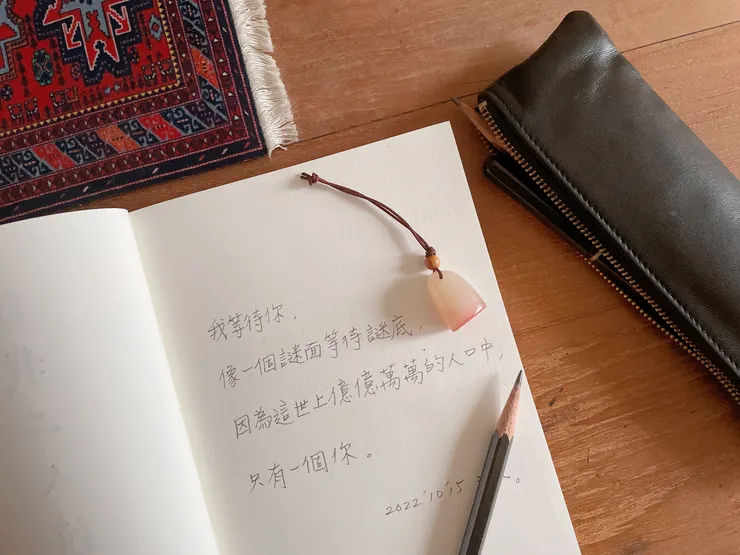 我等待你，
像一個謎面等待謎底，
因為這世上億億萬萬的人口中，
只有一個你。
2022'10'15